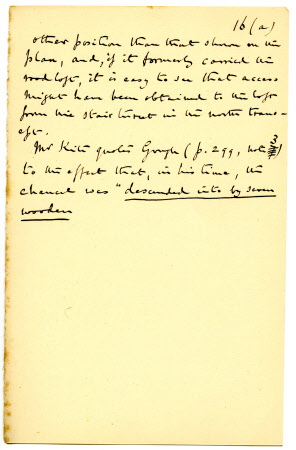 16 (a)
other position than that shown on the
plan, and, if it formerly carried the
rood loft, it is easy to see that access
might have been obtained to the loft
from the stair turret in the north trans-
ept.
Mr Kite quotes Gough (p. 299, note 3)
to the effect that, in his time, the
chancel was "descended into by seven
wooden